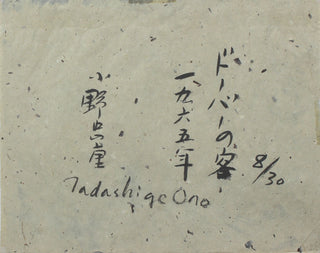 ドーバーの客
一九六五年
8/30
小野忠重
Tadashige Ono